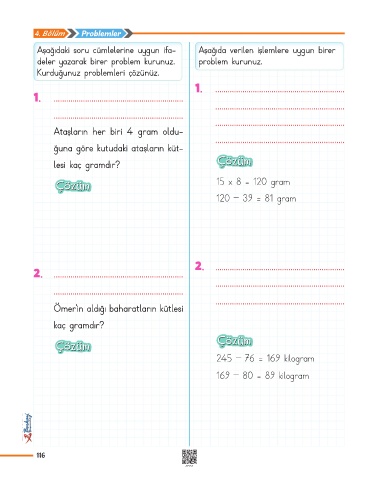 4. Bölüm Problemler
Aşağıdaki soru cümlelerine uygun ifa-
deler yazarak birer problem kurunuz.
Kurduğunuz problemleri çözünüz.
1.
Ataşların her biri 4 gram oldu-
ğuna göre kutudaki ataşların küt-
lesi kaç gramdır?
Çözüm
2.
Ömer'in aldığı baharatların kütlesi
kaç gramdır?
Çözüm
Aşağıda verilen işlemlere uygun birer
problem kurunuz.
1.
Çözüm
15 x 8 = 120 gram
120 - 39 = 81 gram
2.
Çözüm
245 - 76 = 169 kilogram
169 - 80 = 89 kilogram
116